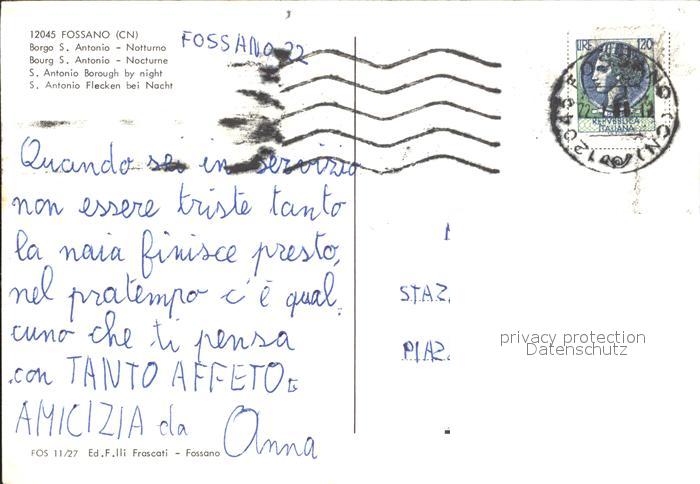 12045 FOSSANO (CN)
Borgo S. Antonio - Notturno
Bourg S. Antonio - Nocturne
S. Antonio Borough by night
S. Antonio Flecken bei Nacht
FOSSANO, 22
LIRE 120
REPVBBLICA
ITALIANA
12045 FOSSANO (CN)
Quando sei in servizio
non essere triste tanto
la naia finisce presto,
nel pratempo c'è qual.
cuno che ti pensa
con TANTO AFFETO E
AMICIZIA da Anna
STAZ.
PIAZ.
privacy protection
Datenschutz
FOS 11/27 Ed. F.lli Frascati - Fossano